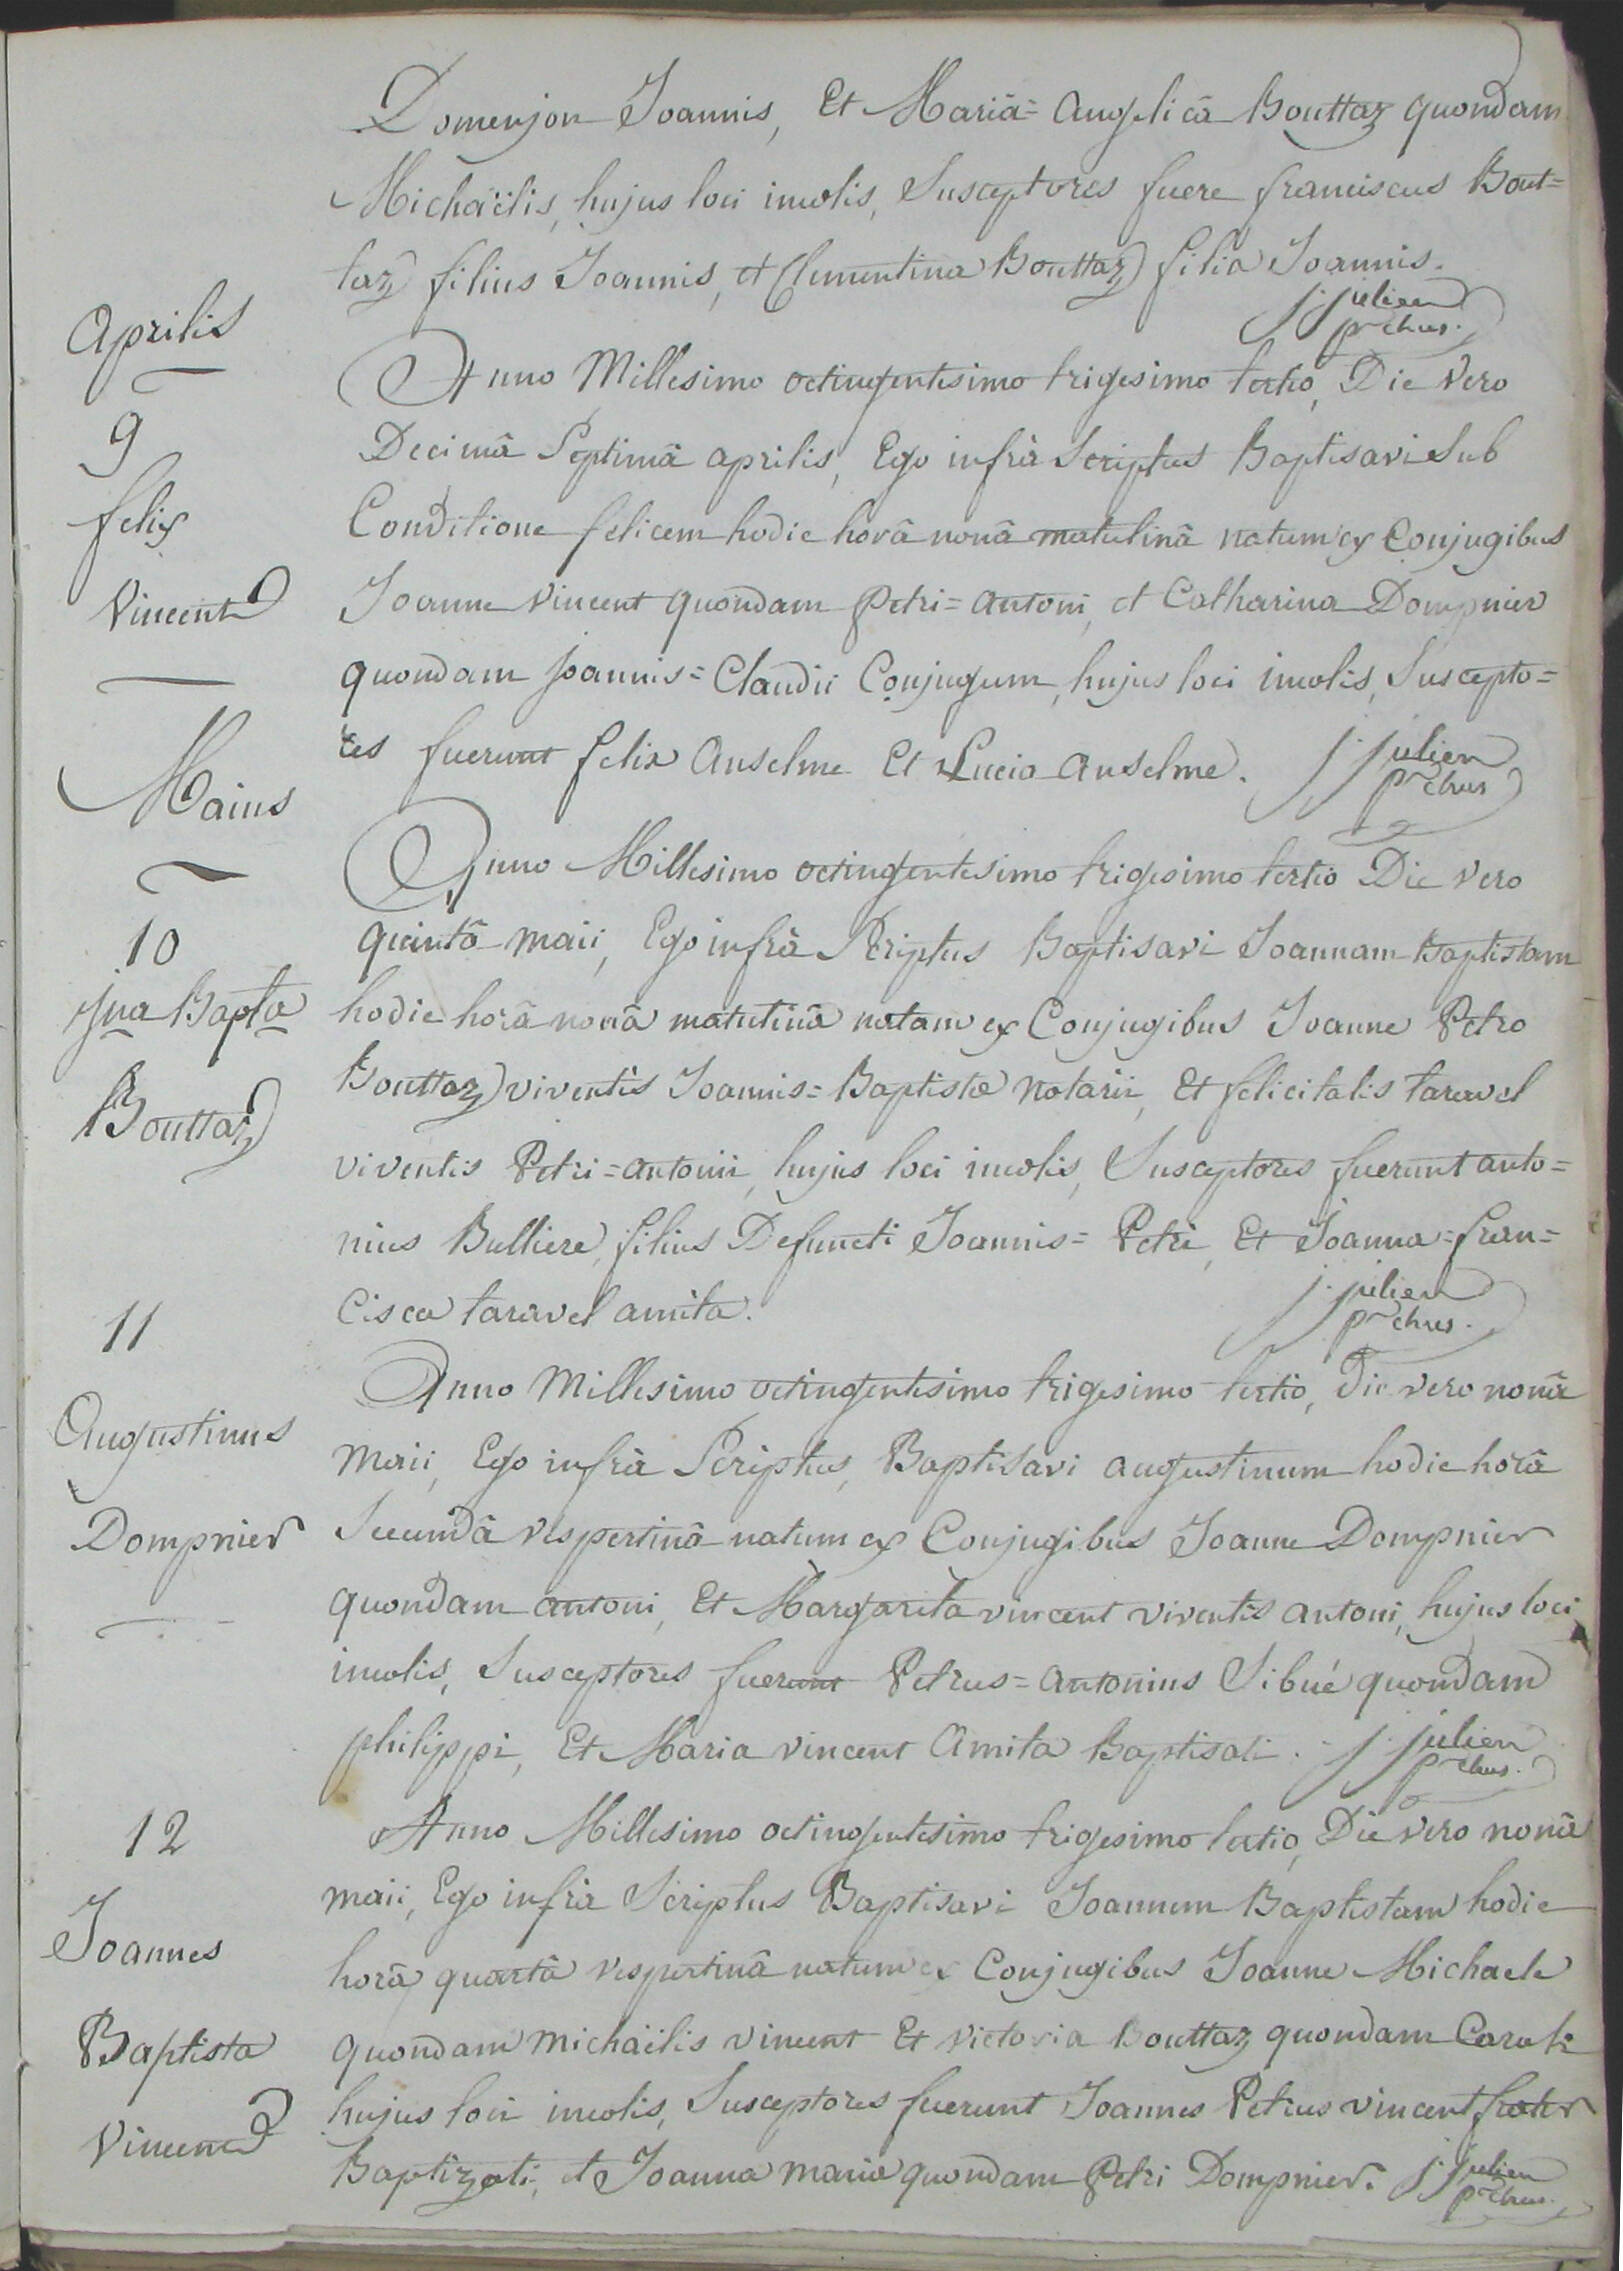 Domenjon Joannis, Et Mariâ = Angelicâ Bouttaz quondam
Michaëlis, hujus loci incolis, Susceptores fuere franciscus Bout=
taz filius Joannis, et Clementina Bouttaz filia Joannis.
j. julien
prchus.
Aprilis
Anno Millesimo octingentesimo trigesimo tertio, Die vero
9
Decimâ Septimâ aprilis, Ego infrà Scriptus Baptisavi Sub
felix
Conditione felicem hodie horâ nonâ matutinâ natum ex Conjugibus
Vincent
Joanne Vincent quondam Petri = antoni, et Catharina Dompnier
quondam Joannis = Claudii Conjugum, hujus loci incolis, Suscepto=
res fuerunt felix Anselme Et Lucia Anselme.
j. julien
prchus
Maius
Anno Millesimo octingentesimo trigesimo tertio Die vero
10
quintâ maii, Ego infrà Scriptus Baptisavi Joannam Baptistam
jna Bapta
hodie horâ nonâ matutinâ natam ex Conjugibus Joanne Petro
Bouttaz
Bouttaz viventis Joannis = Baptistæ notarii, Et felicitatis taravel
viventis Petri = antonii, hujus loci incolis, Susceptores fuerunt anto=
nius Bulliere, filius Defuncti Joannis = Petri, Et Joanna = fran=
cisca taravel amita.
j. julien
prchus.
11
Anno Millesimo octingentesimo trigesimo tertio, die vero nonâ
Augustinus
maii, Ego infrà Scriptus, Baptisavi augustinum hodie horâ
Dompnier
Secundâ vespertinâ natum ex Conjugibus Joanne Dompnier
quondam antoni, Et Margarita vincent viventis antoni, hujus loci
incolis, Susceptores fuerunt Petrus = antonius Sibué quondam
philippi, Et Maria vincent Amita Baptisati.
j. julien
prchus.
12
Anno Millesimo octingentesimo trigesimo tertio, Die vero nonâ
maii, Ego infrà Scriptus Baptisavi Joannem Baptistam hodie
Joannes
horâ quartâ vespertinâ natum ex Conjugibus Joanne Michaele
Baptista
quondam michaëlis vincent Et victoria Bouttaz quondam Caroli
Vincent
hujus loci incolis, Susceptores fuerunt Joannes Petrus vincent frater
Baptizati, et Joanna maria quondam Petri Dompnier.
j. julien
prchus.